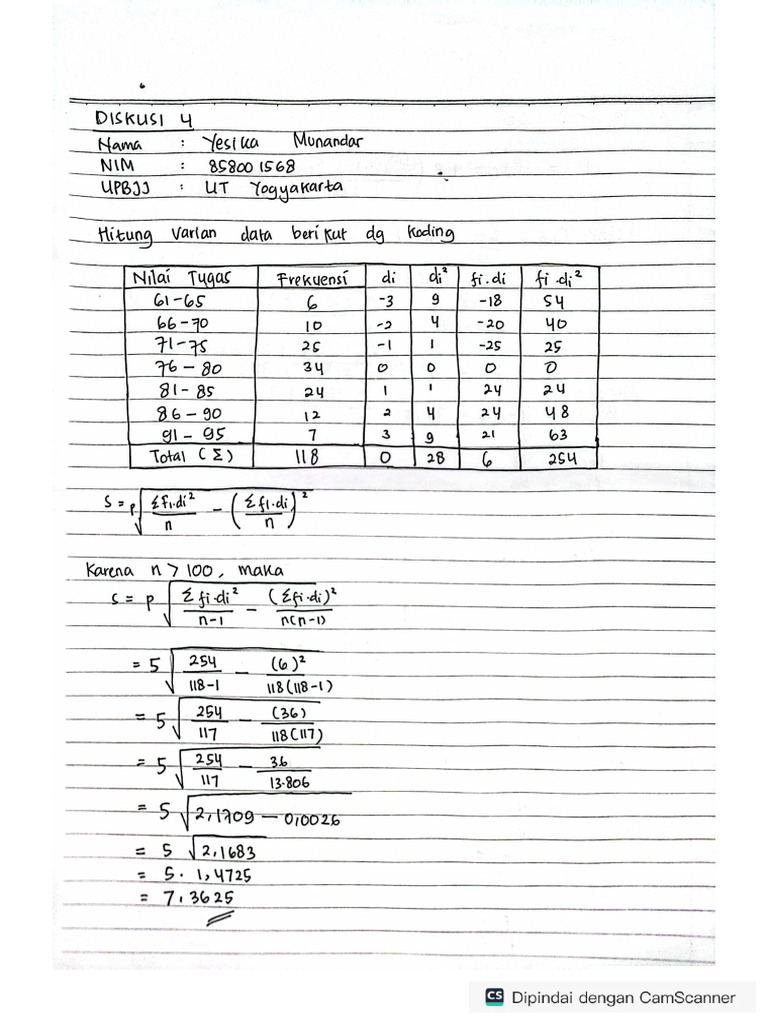 DISKUSI 4
Nama : Yesika Munandar
NIM : 858001568
UPBJJ : UT Yogyakarta
Hitung Varian data berikut dg Koding
Nilai Tugas Frekuensi di di² fi.di fi.di²
61-65 6 -3 9 -18 54
66-70 10 -2 4 -20 40
71-75 25 -1 1 -25 25
76-80 34 0 0 0 0
81-85 24 1 1 24 24
86-90 12 2 4 24 48
91-95 7 3 9 21 63
Total (Σ) 118 0 28 6 254
S = p√(Σfi.di²/n - (Σfi.di/n)²)
Karena n > 100, maka
S = p √(Σfi.di²/n-1 - (Σfi.di)²/n(n-1))
= 5 √(254/118-1 - (6)²/118(118-1))
= 5 √(254/117 - (36)/118(117))
= 5 √(254/117 - 36/13.806)
= 5 √2,1709 - 0,0026
= 5 √2,1683
= 5 . 1,4725
= 7,3625
CS Dipindai dengan CamScanner